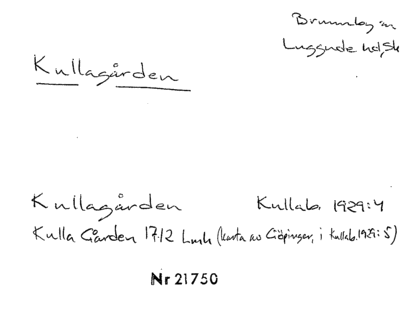 Brunnby sn
Luggude hd, Sk
Kullagården
Kullagården Kullab. 1929:4
Kulla Gården 1712 Lmk (karta av Göpinger, i Kullab. 1929:5)
Nr 21750